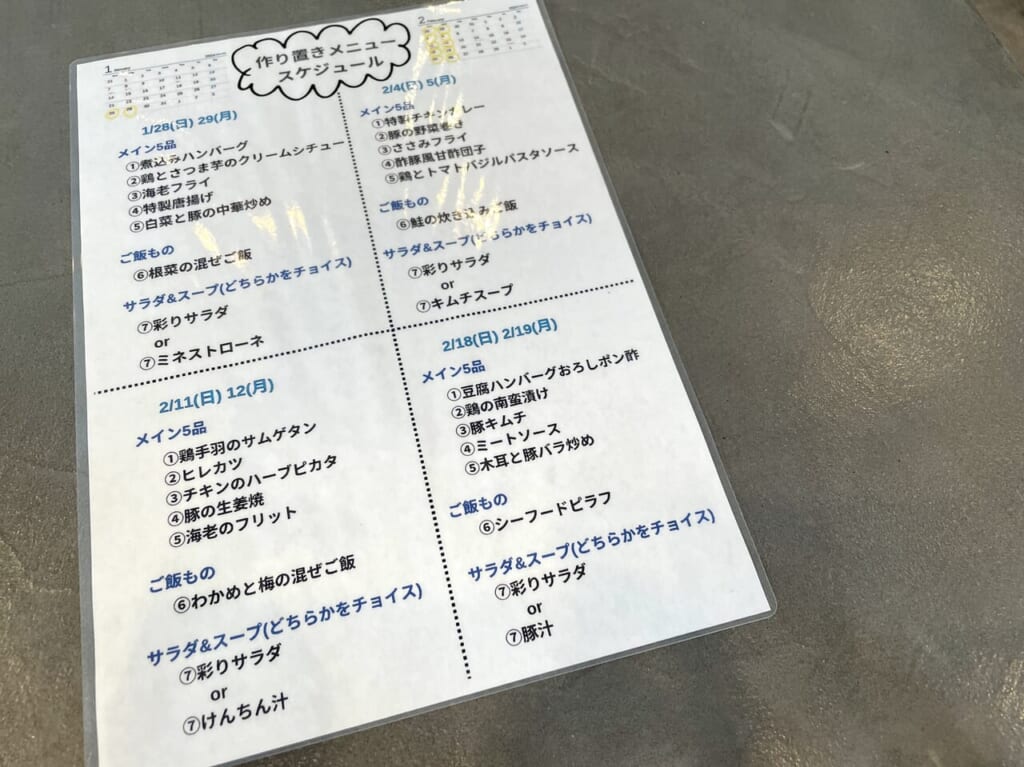 作り置きメニュー
スケジュール
1
2
1/28(日) 29(月)
メイン5品
①煮込みハンバーグ
②鶏とさつま芋のクリームシチュー
③海老フライ
④特製唐揚げ
⑤白菜と豚の中華炒め
ご飯もの
⑥根菜の混ぜご飯
サラダ&スープ(どちらかをチョイス)
⑦彩りサラダ
or
⑦ミネストローネ
2/4(日) 5(月)
メイン5品
①特製チキンカレー
②豚の野菜巻き
③ささみフライ
④酢豚風甘酢団子
⑤鶏とトマトバジルパスタソース
ご飯もの
⑥鮭の炊き込みご飯
サラダ&スープ(どちらかをチョイス)
⑦彩りサラダ
or
⑦キムチスープ
2/11(日) 12(月)
メイン5品
①鶏手羽のサムゲタン
②ヒレカツ
③チキンのハーブピカタ
④豚の生姜焼
⑤海老のフリット
ご飯もの
⑥わかめと梅の混ぜご飯
サラダ&スープ(どちらかをチョイス)
⑦彩りサラダ
or
⑦けんちん汁
2/18(日) 2/19(月)
メイン5品
①豆腐ハンバーグおろしポン酢
②鶏の南蛮漬け
③豚キムチ
④ミートソース
⑤木耳と豚バラ炒め
ご飯もの
⑥シーフードピラフ
サラダ&スープ(どちらかをチョイス)
⑦彩りサラダ
or
⑦豚汁